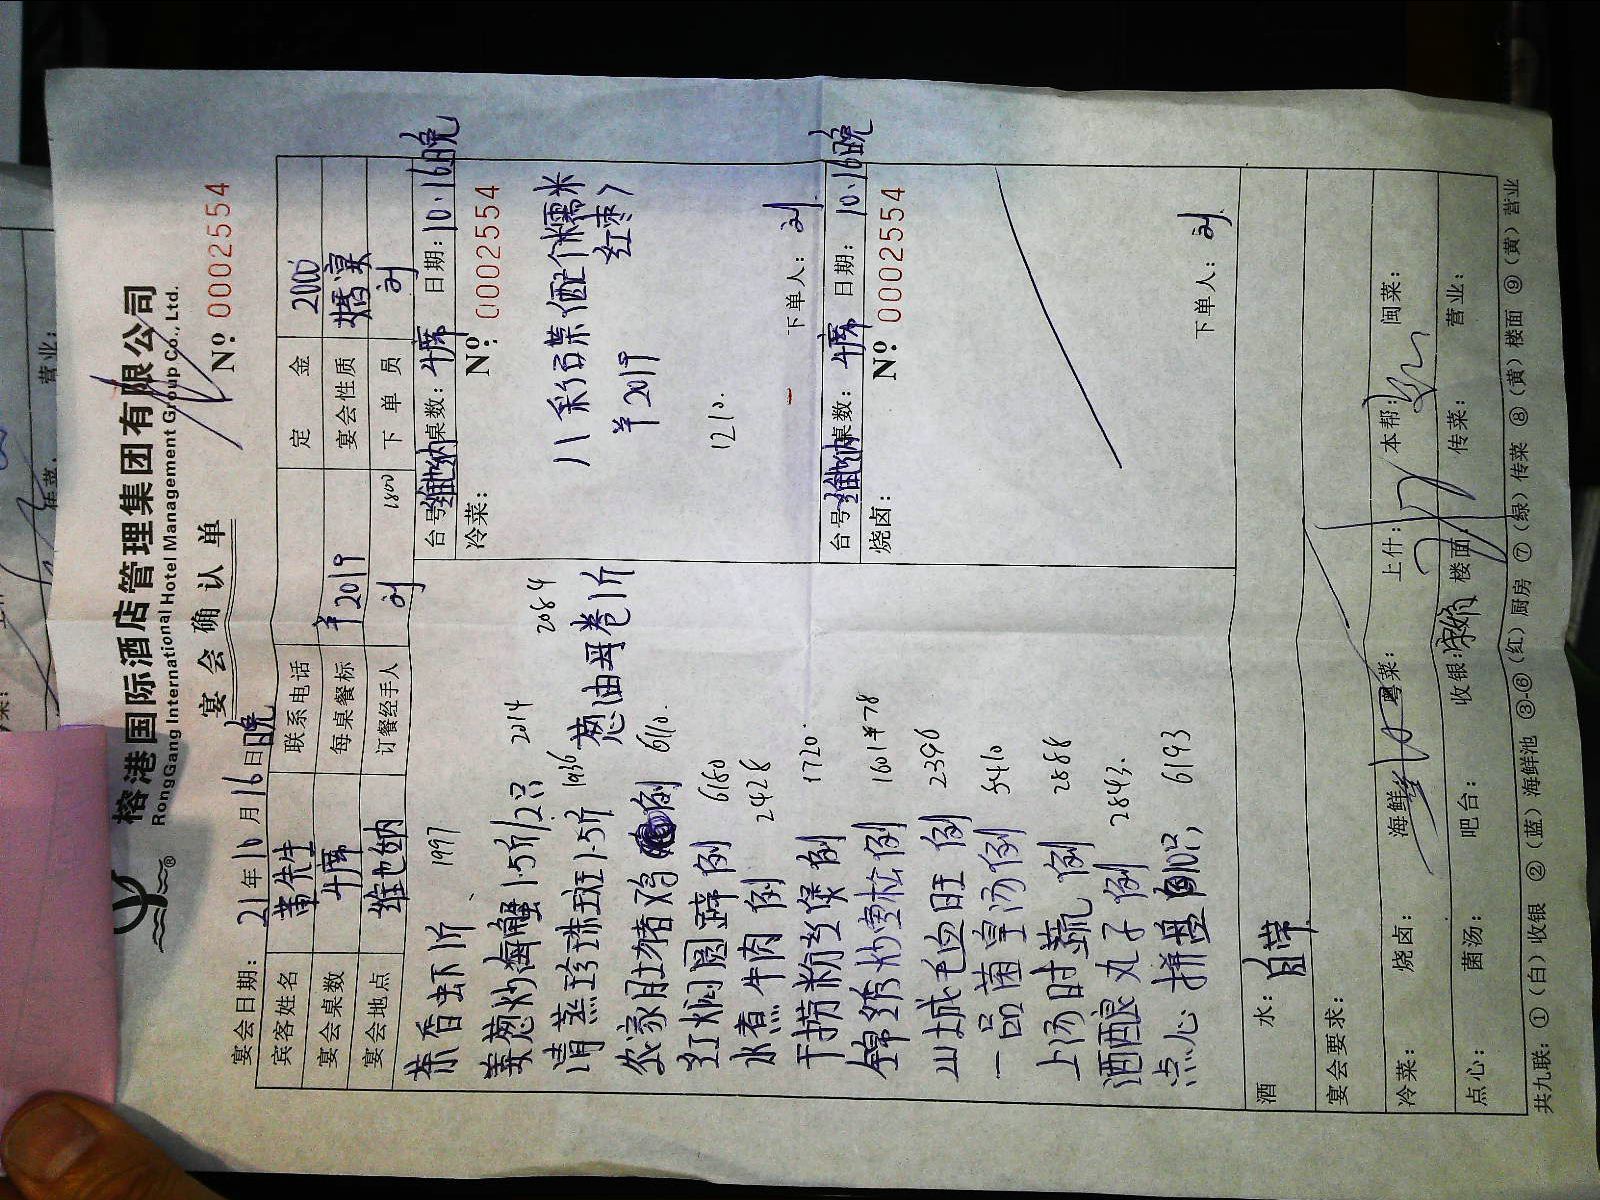 榕港国际酒店管理集团有限公司
RongGang International Hotel Management Group Co., Ltd.
宴会确认单
宴会日期: 21年10月16日晚
Nº 0002554
宾客姓名 黄先生 联系电话 定金 2000
宴会桌数 4席 每桌餐标 ¥2019 宴会性质 婚宴
宴会地点 维也纳 订餐经手人 刘 1800 下单员 刘
茶香虾1斤 1997
姜葱炒海蟹1.5斤/2只 2014
清蒸珍珠斑1.5斤 1936
2084
葱油毋卷1斤
农家肚猪鸡 例 6110.
红焖圆蹄 例 6180
水煮牛肉 例 2428
干捞粉丝煲 例 1720.
锦绣炒雪松 例 1601 ¥78
山城毛血旺 例 2396
一品菌皇汤 例 5410
上汤时蔬 例 2888
酒酿丸子 例 2843.
点心拼盘 6193
台号: 维也纳 桌数: 4席 日期: 10.16晚
冷菜: Nº: 0002554
八彩石菜(配1个糯米
红枣)
¥2019
1210.
下单人: 刘
台号: 维也纳 桌数: 4席 日期: 10.16晚
烧卤: Nº: 0002554
下单人: 刘
酒水: 自带
宴会要求:
冷菜: 烧卤: 海鲜: 粤菜: 上什: 本帮: 闽菜:
点心: 菌汤: 吧台: 收银: 楼面: 传菜: 营业:
共九联: ①(白)收银 ②(蓝)海鲜池 ③-⑥(红)厨房 ⑦(绿)传菜 ⑧(黄)楼面 ⑨(黄)营业
营业:
传菜: